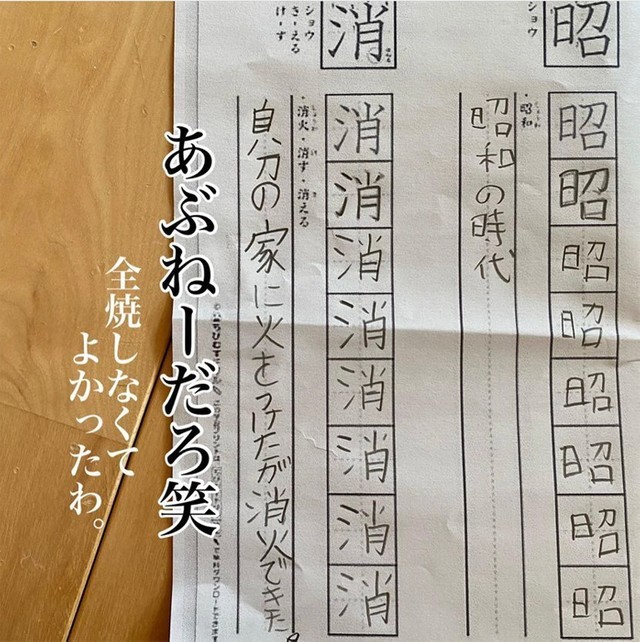 昭
ショウ
昭
昭
昭
昭
昭
昭
昭
昭
しょうわ
・昭和
昭和の時代
消
ショウ
き-える
け-す
消
消
消
消
消
消
消
消
しょうか け き
・消火・消す・消える
自分の家に火をつけたが消火できた。
あぶねーだろ笑
全焼しなくて
よかったわ。